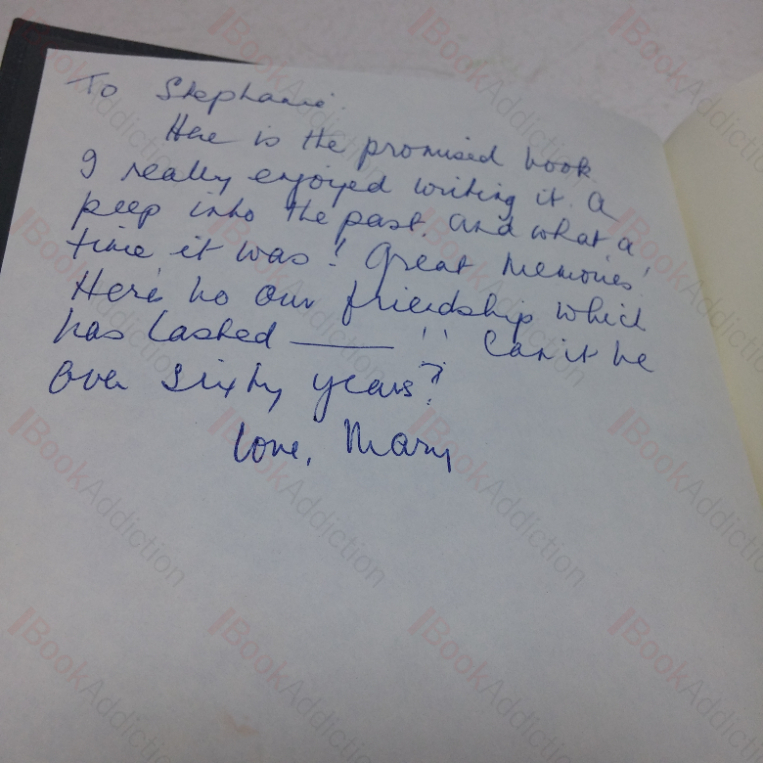 To Stephanie.
Here is the promised book
I really enjoyed writing it. A
peep into the past. and what a
time it was! Great memories!
Here's to our friendship which
has lasted ——— !! Can it be
over sixty years?
Love, Mary
IBookAddiction